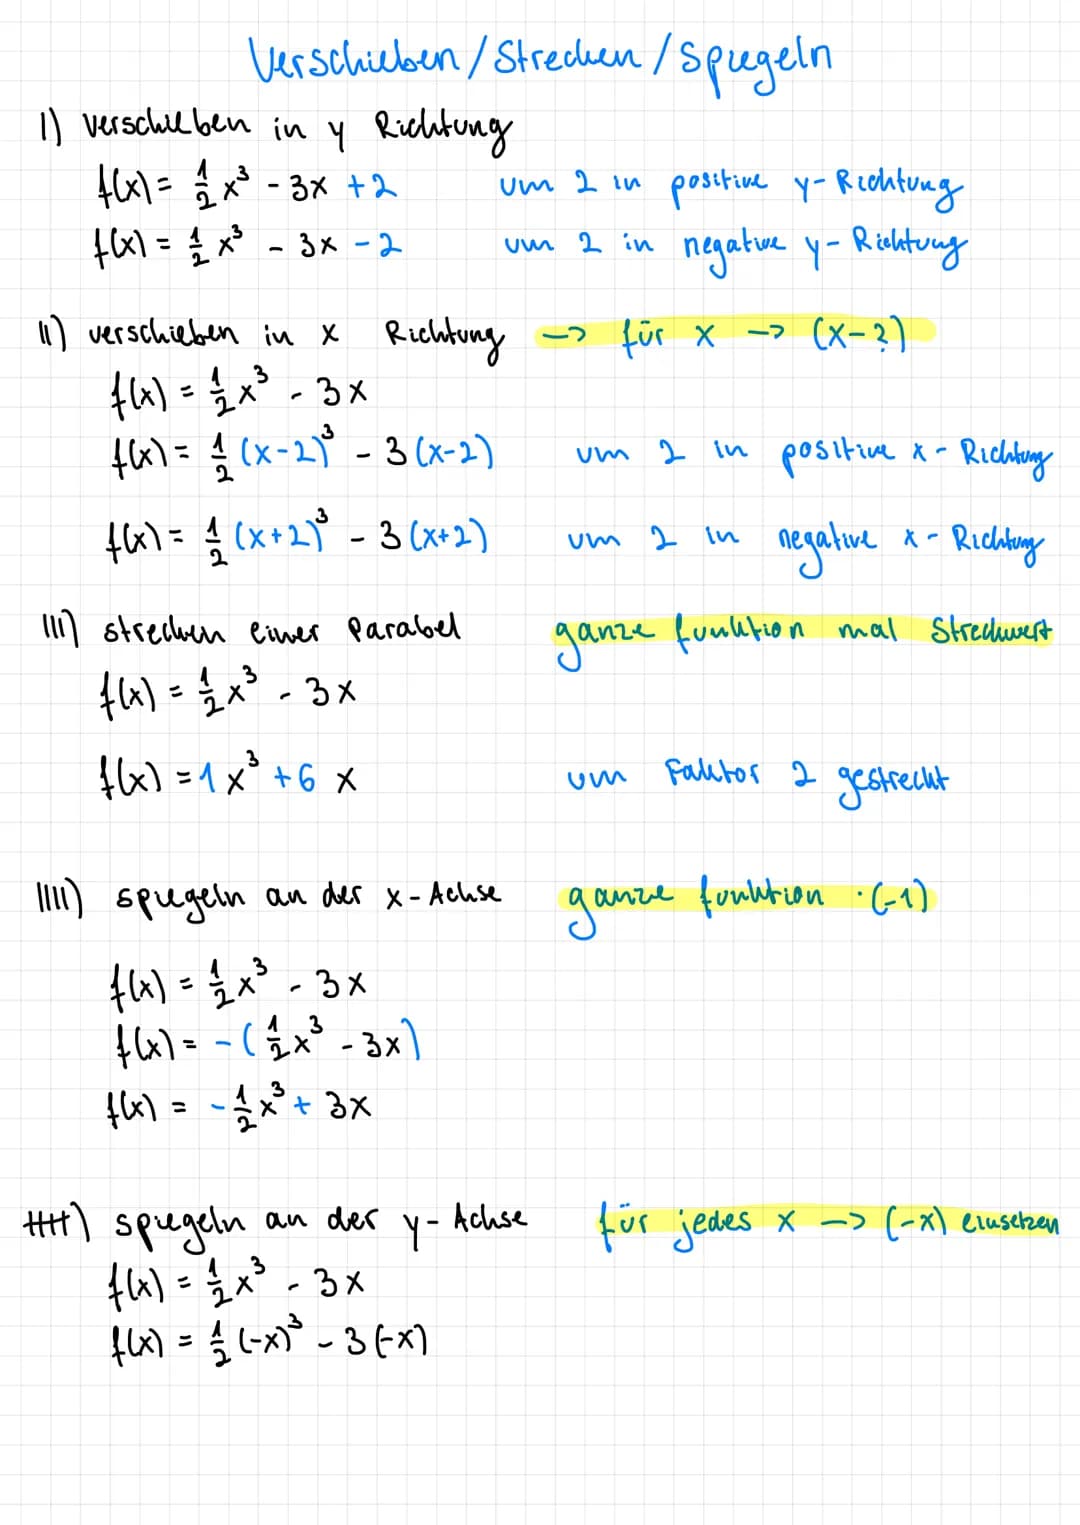 Verschieben / Strecken / Spiegeln
I) verschieben in y Richtung
f(x) = 1/2 x³ - 3x + 2 um 2 in positive y-Richtung
f(x) = 1/2 x³ - 3x - 2 um 2 in negative y-Richtung
II) verschieben in x Richtung -> für x -> (x-?)
f(x) = 1/2 x³ - 3x
f(x) = 1/2 (x-2)³ - 3(x-2) um 2 in positive x-Richtung
f(x) = 1/2 (x+2)³ - 3(x+2) um 2 in negative x-Richtung
III) strecken einer Parabel ganze funktion mal Streckwert
f(x) = 1/2 x³ - 3x
f(x) = 1x³ + 6x um Faktor 2 gestreckt
IIII) spiegeln an der x-Achse ganze funktion ·(-1)
f(x) = 1/2 x³ - 3x
f(x) = -(1/2 x³ - 3x)
f(x) = -1/2 x³ + 3x
IIIII) spiegeln an der y-Achse für jedes x -> (-x) einsetzen
f(x) = 1/2 x³ - 3x
f(x) = 1/2 (-x)³ - 3(-x)